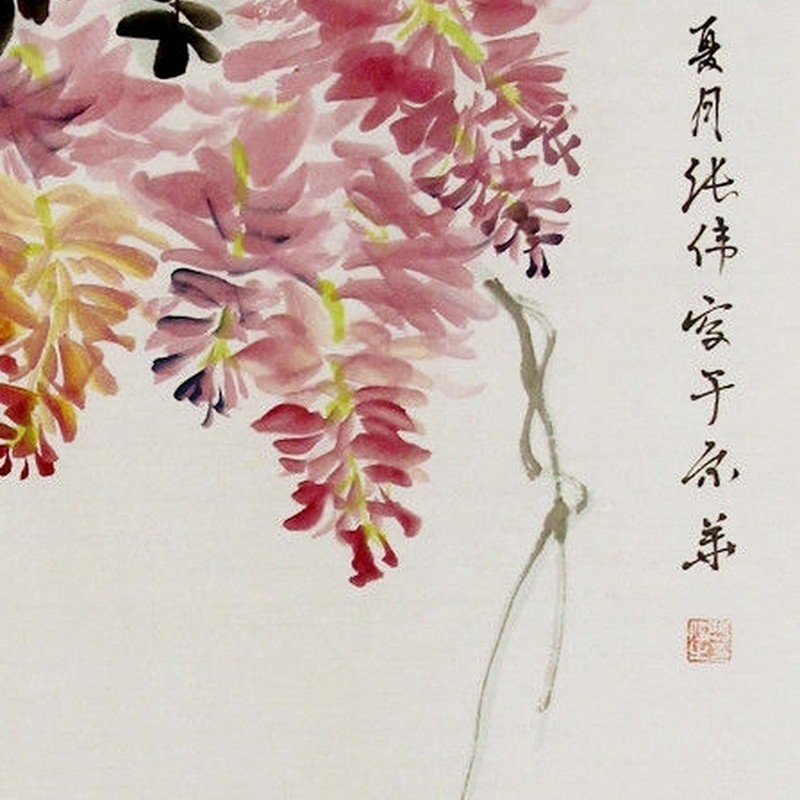 夏月张伟写于京华